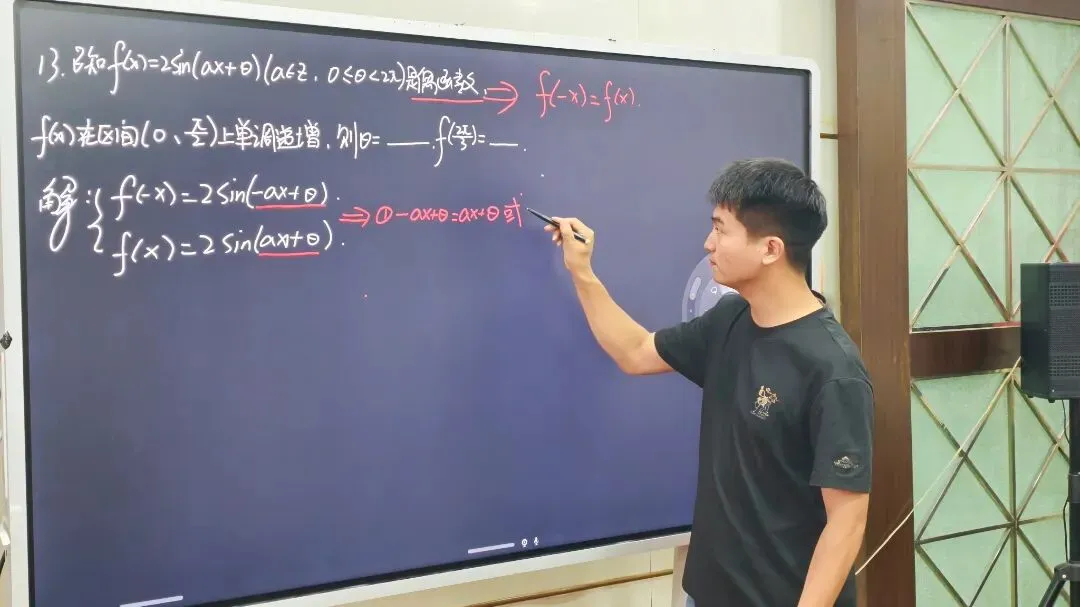 13. 已知f(x)=2sin(ax+θ)(a∈Z, 0≤θ<2π)是偶函数, ⇒ f(-x)=f(x).
f(x)在区间(0、π/2)上单调递增, 则θ=____. f(2π/3)=___.
解: { f(-x)=2sin(-ax+θ).
f(x)=2sin(ax+θ).
⇒ ①-ax+θ=ax+θ或